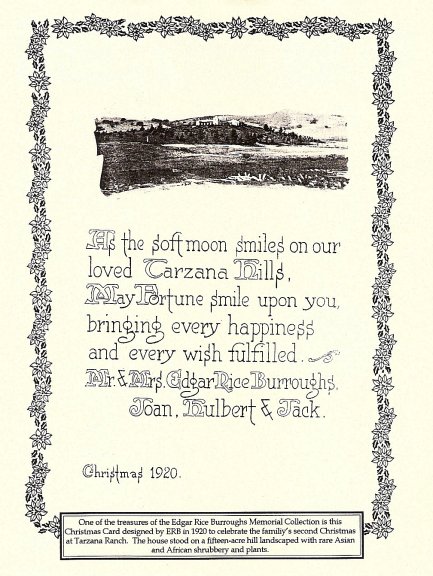 As the soft moon smiles on our
loved Tarzana Hills,
May Fortune smile upon you,
bringing every happiness
and every wish fulfilled.
Mr. & Mrs. Edgar Rice Burroughs.
Joan, Hulbert & Jack.
Christmas 1920.
One of the treasures of the Edgar Rice Burroughs Memorial Collection is this
Christmas Card designed by ERB in 1920 to celebrate the family's second Christmas
at Tarzana Ranch. The house stood on a fifteen-acre hill landscaped with rare Asian
and African shrubbery and plants.